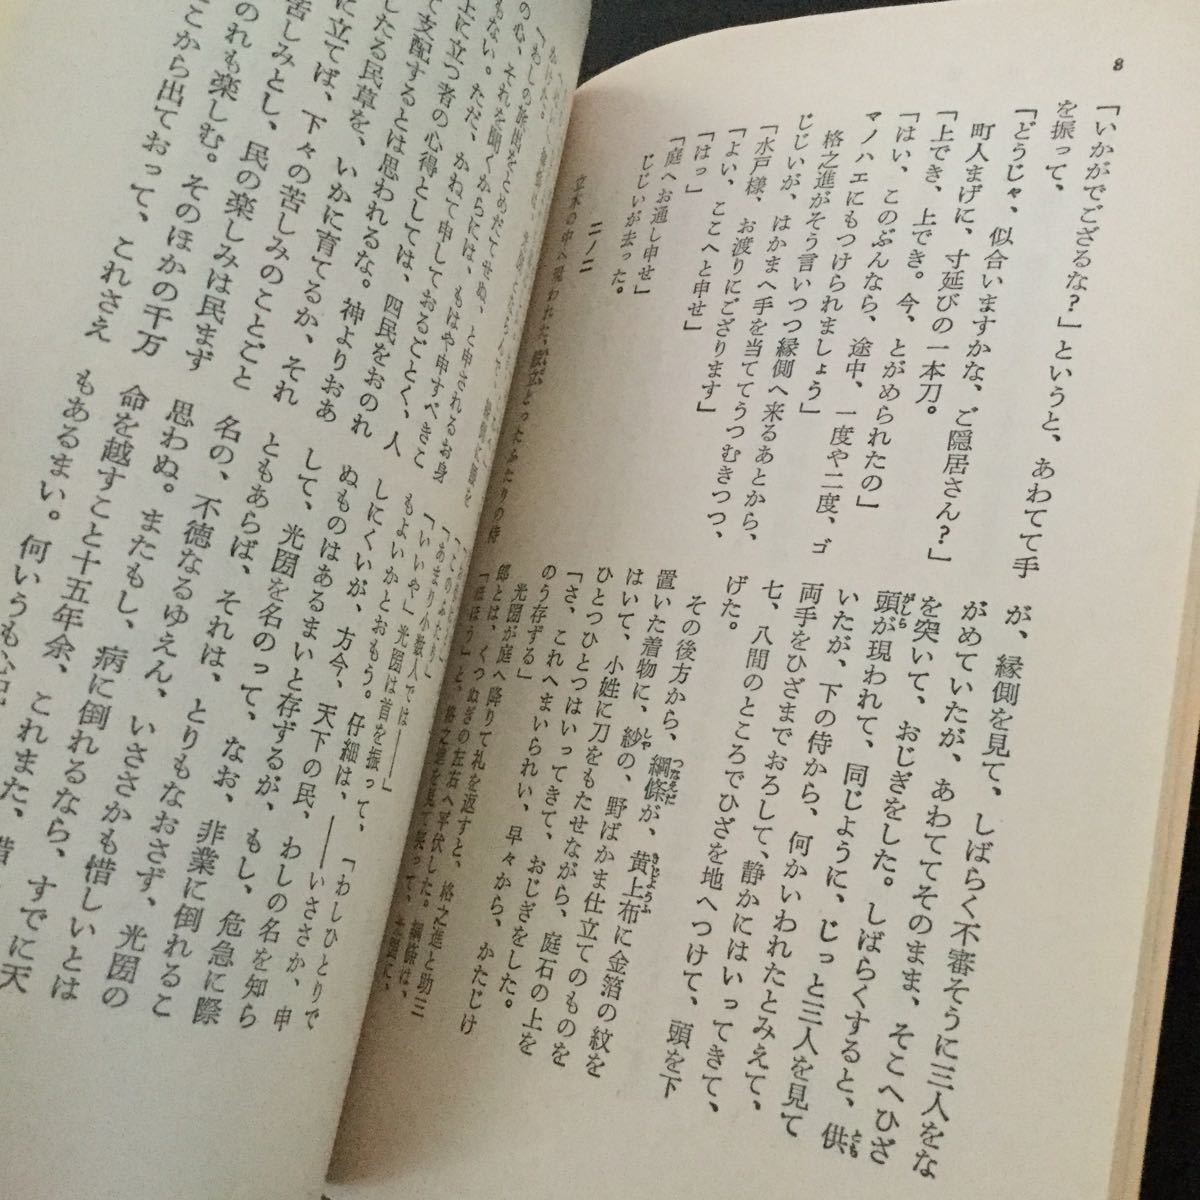 8
「いかがでござるな?」というと、あわてて手
を振って、
「どうじゃ、似合いますかな、ご隠居さん?」
町人まげに、寸延びの一本刀。
「上でき、上でき。今、とがめられたの」
「はい、このぶんなら、途中、一度や二度、ゴ
マノハエにもつけられましょう」
格之進がそう言いつつ縁側へ来るあとから、
じじいが、はかまへ手を当ててうつむきつつ、
「水戸様、お渡りにござります」
「よい、ここへと申せ」
「はっ」
「庭へお通し申せ」
じじいが去った。
二ノ二
立木の中へ現われた、
が、縁側を見て、しばらく不審そうに三人をな
がめていたが、あわててそのまま、そこへひざ
を突いて、おじぎをした。しばらくすると、供
頭が現われて、同じように、じっと三人を見て
いたが、下の侍から、何かいわれたとみえて、
両手をひざまでおろして、静かにはいってきて、
七、八間のところでひざを地へつけて、頭を下
げた。
その後方から、綱條が、黄上布に金箔の紋を
置いた着物に、紗の、野ばかま仕立てのものを
はいて、小姓に刀をもたせながら、庭石の上を
ひとつひとつはいってきて、おじぎをした。
「さ、これへまいられい、早々から、かたじけ
のう存ずる」
光圀が庭へ降りて礼を返すと、格之進と助三
郎とは、くつぬぎの左右へ平伏した。綱條は、
「ほほう」と、格之進を見て笑って、光圀に、
「このふたり」
「あまり小数人では――」
「いいや」光圀は首を振って、
「わしの旅出をとめだてせぬ、と申されるお身
の心、それを聞くからには、もはや申すべきこ
もない。ただ、かねて申しておるごとく、人
上に立つ者の心得としては、四民をおのれ
て支配するとは思われるな。神よりおあ
したる民草を、いかに育てるか、それ
に立てば、下々の苦しみのことごと
苦しみとし、民の楽しみは民まず
のれも楽しむ。そのほかの千万
こから出ておって、これさえ
「わしひとりで
もよいかとおもう。仔細は、――いささか、申
しにくいが、方今、天下の民、わしの名を知ら
ぬものはあるまいと存ずるが、もし、危急に際
して、光圀を名のって、なお、非業に倒れるこ
ともあらば、それは、とりもなおさず、光圀の
名の、不徳なるゆえん、いささかも惜しいとは
思わぬ。またもし、病に倒れるなら、すでに天
命を越すこと十五年余、これまた、惜
もあるまい。何いうも、